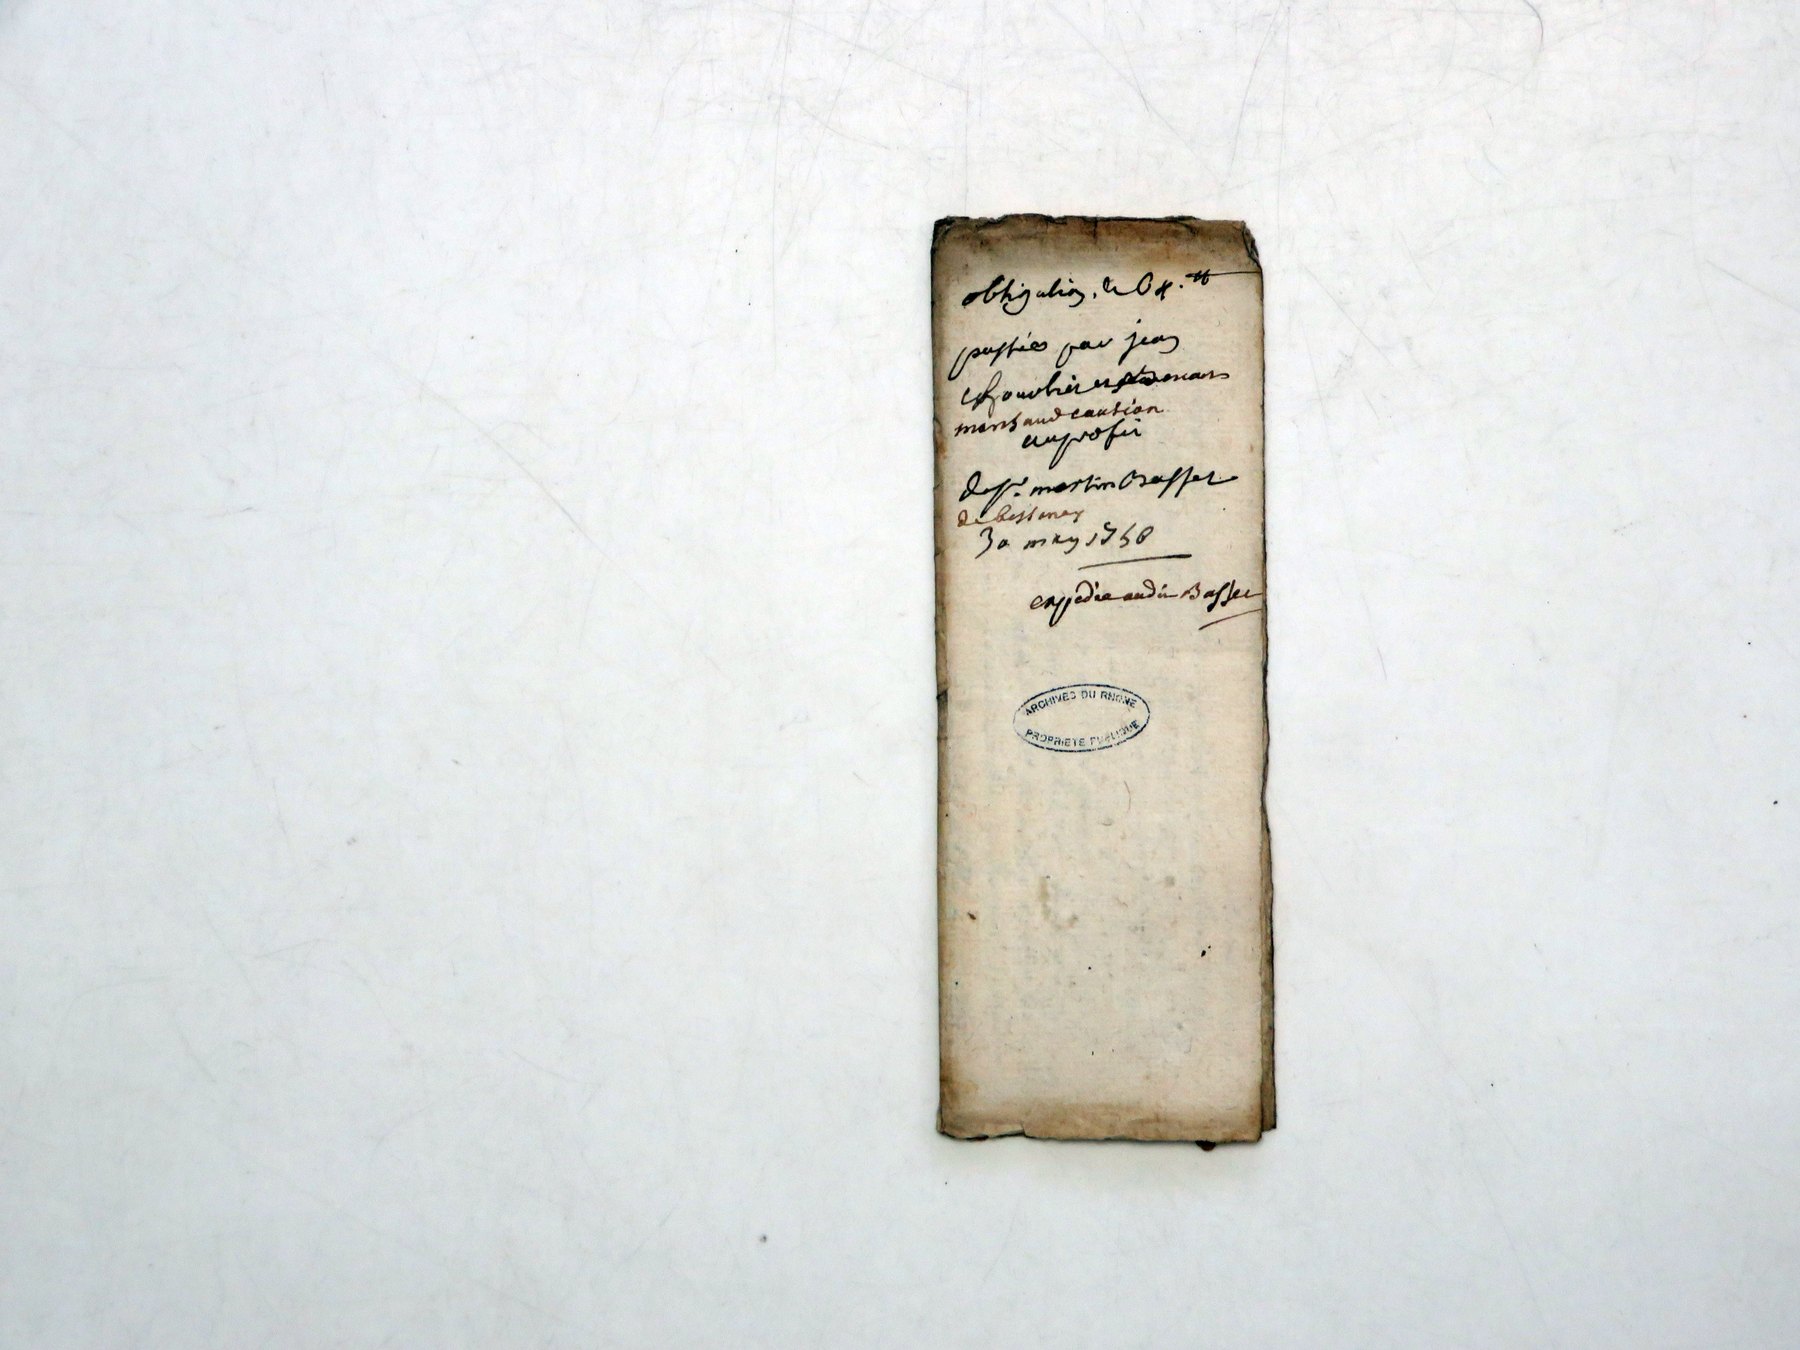 obligation, de
passées par jean
et
marchand caution
au profit
de sr. martin Basset
de bessenay
30 may 1758
expédié audit Basset
ARCHIVES DU RHONE
PROPRIETE PUBLIQUE